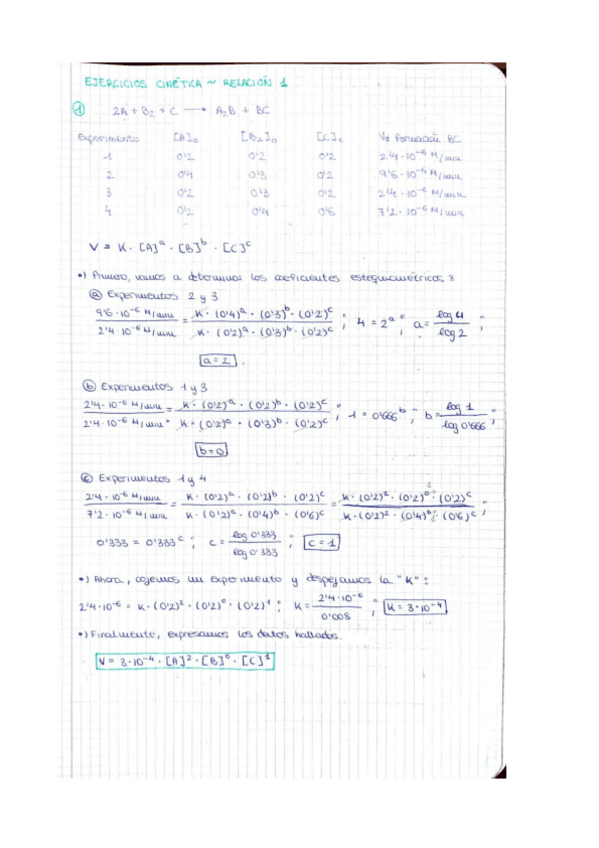 EJERCICIOS CINÉTICA ~ RELACIÓN 1
① 2A + B₂ + C → A₂B + BC
Experimento [A]₀ [B₂]₀ [C]₀ V₀ formación BC
1 0'2 0'2 0'2 2'4·10⁻⁶ M/min
2 0'4 0'3 0'2 9'6·10⁻⁶ M/min
3 0'2 0'3 0'2 2'4·10⁻⁶ M/min
4 0'2 0'4 0'6 7'2·10⁻⁶ M/min
V = K · [A]ᵃ · [B]ᵇ · [C]ᶜ
•) Primero, vamos a determinar los coeficientes estequiométricos:
ⓐ Experimentos 2 y 3
9'6·10⁻⁶ M/min / 2'4·10⁻⁶ M/min = K·(0'4)ᵃ·(0'3)ᵇ·(0'2)ᶜ / K·(0'2)ᵃ·(0'3)ᵇ·(0'2)ᶜ ; 4 = 2ᵃ ; a = log 4 / log 2 ;
a = 2 .
ⓑ Experimentos 1 y 3
2'4·10⁻⁶ M/min / 2'4·10⁻⁶ M/min = K·(0'2)ᵃ·(0'2)ᵇ·(0'2)ᶜ / K·(0'2)ᵃ·(0'3)ᵇ·(0'2)ᶜ ; 1 = 0'666ᵇ ; b = log 1 / log 0'666 ;
b = 0
ⓒ Experimentos 1 y 4
2'4·10⁻⁶ M/min / 7'2·10⁻⁶ M/min = K·(0'2)ᵃ·(0'2)ᵇ·(0'2)ᶜ / K·(0'2)ᵃ·(0'4)ᵇ·(0'6)ᶜ = K·(0'2)²·(0'2)⁰·(0'2)ᶜ / K·(0'2)²·(0'4)⁰·(0'6)ᶜ ;
0'333 = 0'333ᶜ ; c = log 0'333 / log 0'333 ; c = 1
•) Ahora, cojemos un experimento y despejamos la "K":
2'4·10⁻⁶ = K·(0'2)²·(0'2)⁰·(0'2)¹ ; K = 2'4·10⁻⁶ / 0'008 ; K = 3·10⁻⁴
•) Finalmente, expresamos los datos hallados.
V = 3·10⁻⁴ · [A]² · [B]⁰ · [C]¹